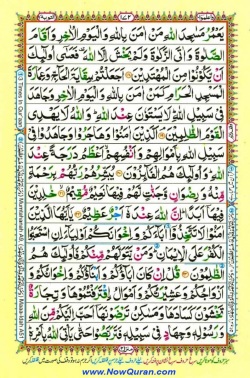 يَعْمُرُ مَسٰجِدَ اللّٰهِ مَنْ اٰمَنَ بِاللّٰهِ وَالْيَوْمِ الْاٰخِرِ وَاَقَامَ
الصَّلٰوةَ وَاٰتَى الزَّكٰوةَ وَلَمْ يَخْشَ اِلَّا اللّٰهَ فَعَسٰٓى اُولٰٓئِكَ
اَنْ يَّكُوْنُوْا مِنَ الْمُهْتَدِيْنَ اَجَعَلْتُمْ سِقَايَةَ الْحَآجِّ وَعِمَارَةَ
الْمَسْجِدِ الْحَرَامِ كَمَنْ اٰمَنَ بِاللّٰهِ وَالْيَوْمِ الْاٰخِرِ وَجَاهَدَ
فِيْ سَبِيْلِ اللّٰهِ لَا يَسْتَوٗنَ عِنْدَ اللّٰهِ وَاللّٰهُ لَا يَهْدِى
الْقَوْمَ الظّٰلِمِيْنَ اَلَّذِيْنَ اٰمَنُوْا وَهَاجَرُوْا وَجَاهَدُوْا فِيْ
سَبِيْلِ اللّٰهِ بِاَمْوَالِهِمْ وَاَنْفُسِهِمْ اَعْظَمُ دَرَجَةً عِنْدَ
اللّٰهِ وَاُولٰٓئِكَ هُمُ الْفَآئِزُوْنَ يُبَشِّرُهُمْ رَبُّهُمْ بِرَحْمَةٍ
مِّنْهُ وَرِضْوَانٍ وَّجَنّٰتٍ لَّهُمْ فِيْهَا نَعِيْمٌ مُّقِيْمٌ خٰلِدِيْنَ
فِيْهَآ اَبَدًا اِنَّ اللّٰهَ عِنْدَهٗٓ اَجْرٌ عَظِيْمٌ يٰٓاَيُّهَا الَّذِيْنَ
اٰمَنُوْا لَا تَتَّخِذُوْٓا اٰبَآءَكُمْ وَاِخْوَانَكُمْ اَوْلِيَآءَ اِنِ اسْتَحَبُّوا
الْكُفْرَ عَلَى الْاِيْمَانِ وَمَنْ يَّتَوَلَّهُمْ مِّنْكُمْ فَاُولٰٓئِكَ هُمُ
الظّٰلِمُوْنَ قُلْ اِنْ كَانَ اٰبَآؤُكُمْ وَاَبْنَآؤُكُمْ وَاِخْوَانُكُمْ وَ
اَزْوَاجُكُمْ وَعَشِيْرَتُكُمْ وَاَمْوَالُ اقْتَرَفْتُمُوْهَا وَتِجَارَةٌ
تَخْشَوْنَ كَسَادَهَا وَمَسٰكِنُ تَرْضَوْنَهَآ اَحَبَّ اِلَيْكُمْ مِّنَ اللّٰهِ
وَرَسُوْلِهٖ وَجِهَادٍ فِيْ سَبِيْلِهٖ فَتَرَبَّصُوْا حَتّٰى يَاْتِيَ اللّٰهُ بِاَمْرِهٖ
www.NowQuran.com